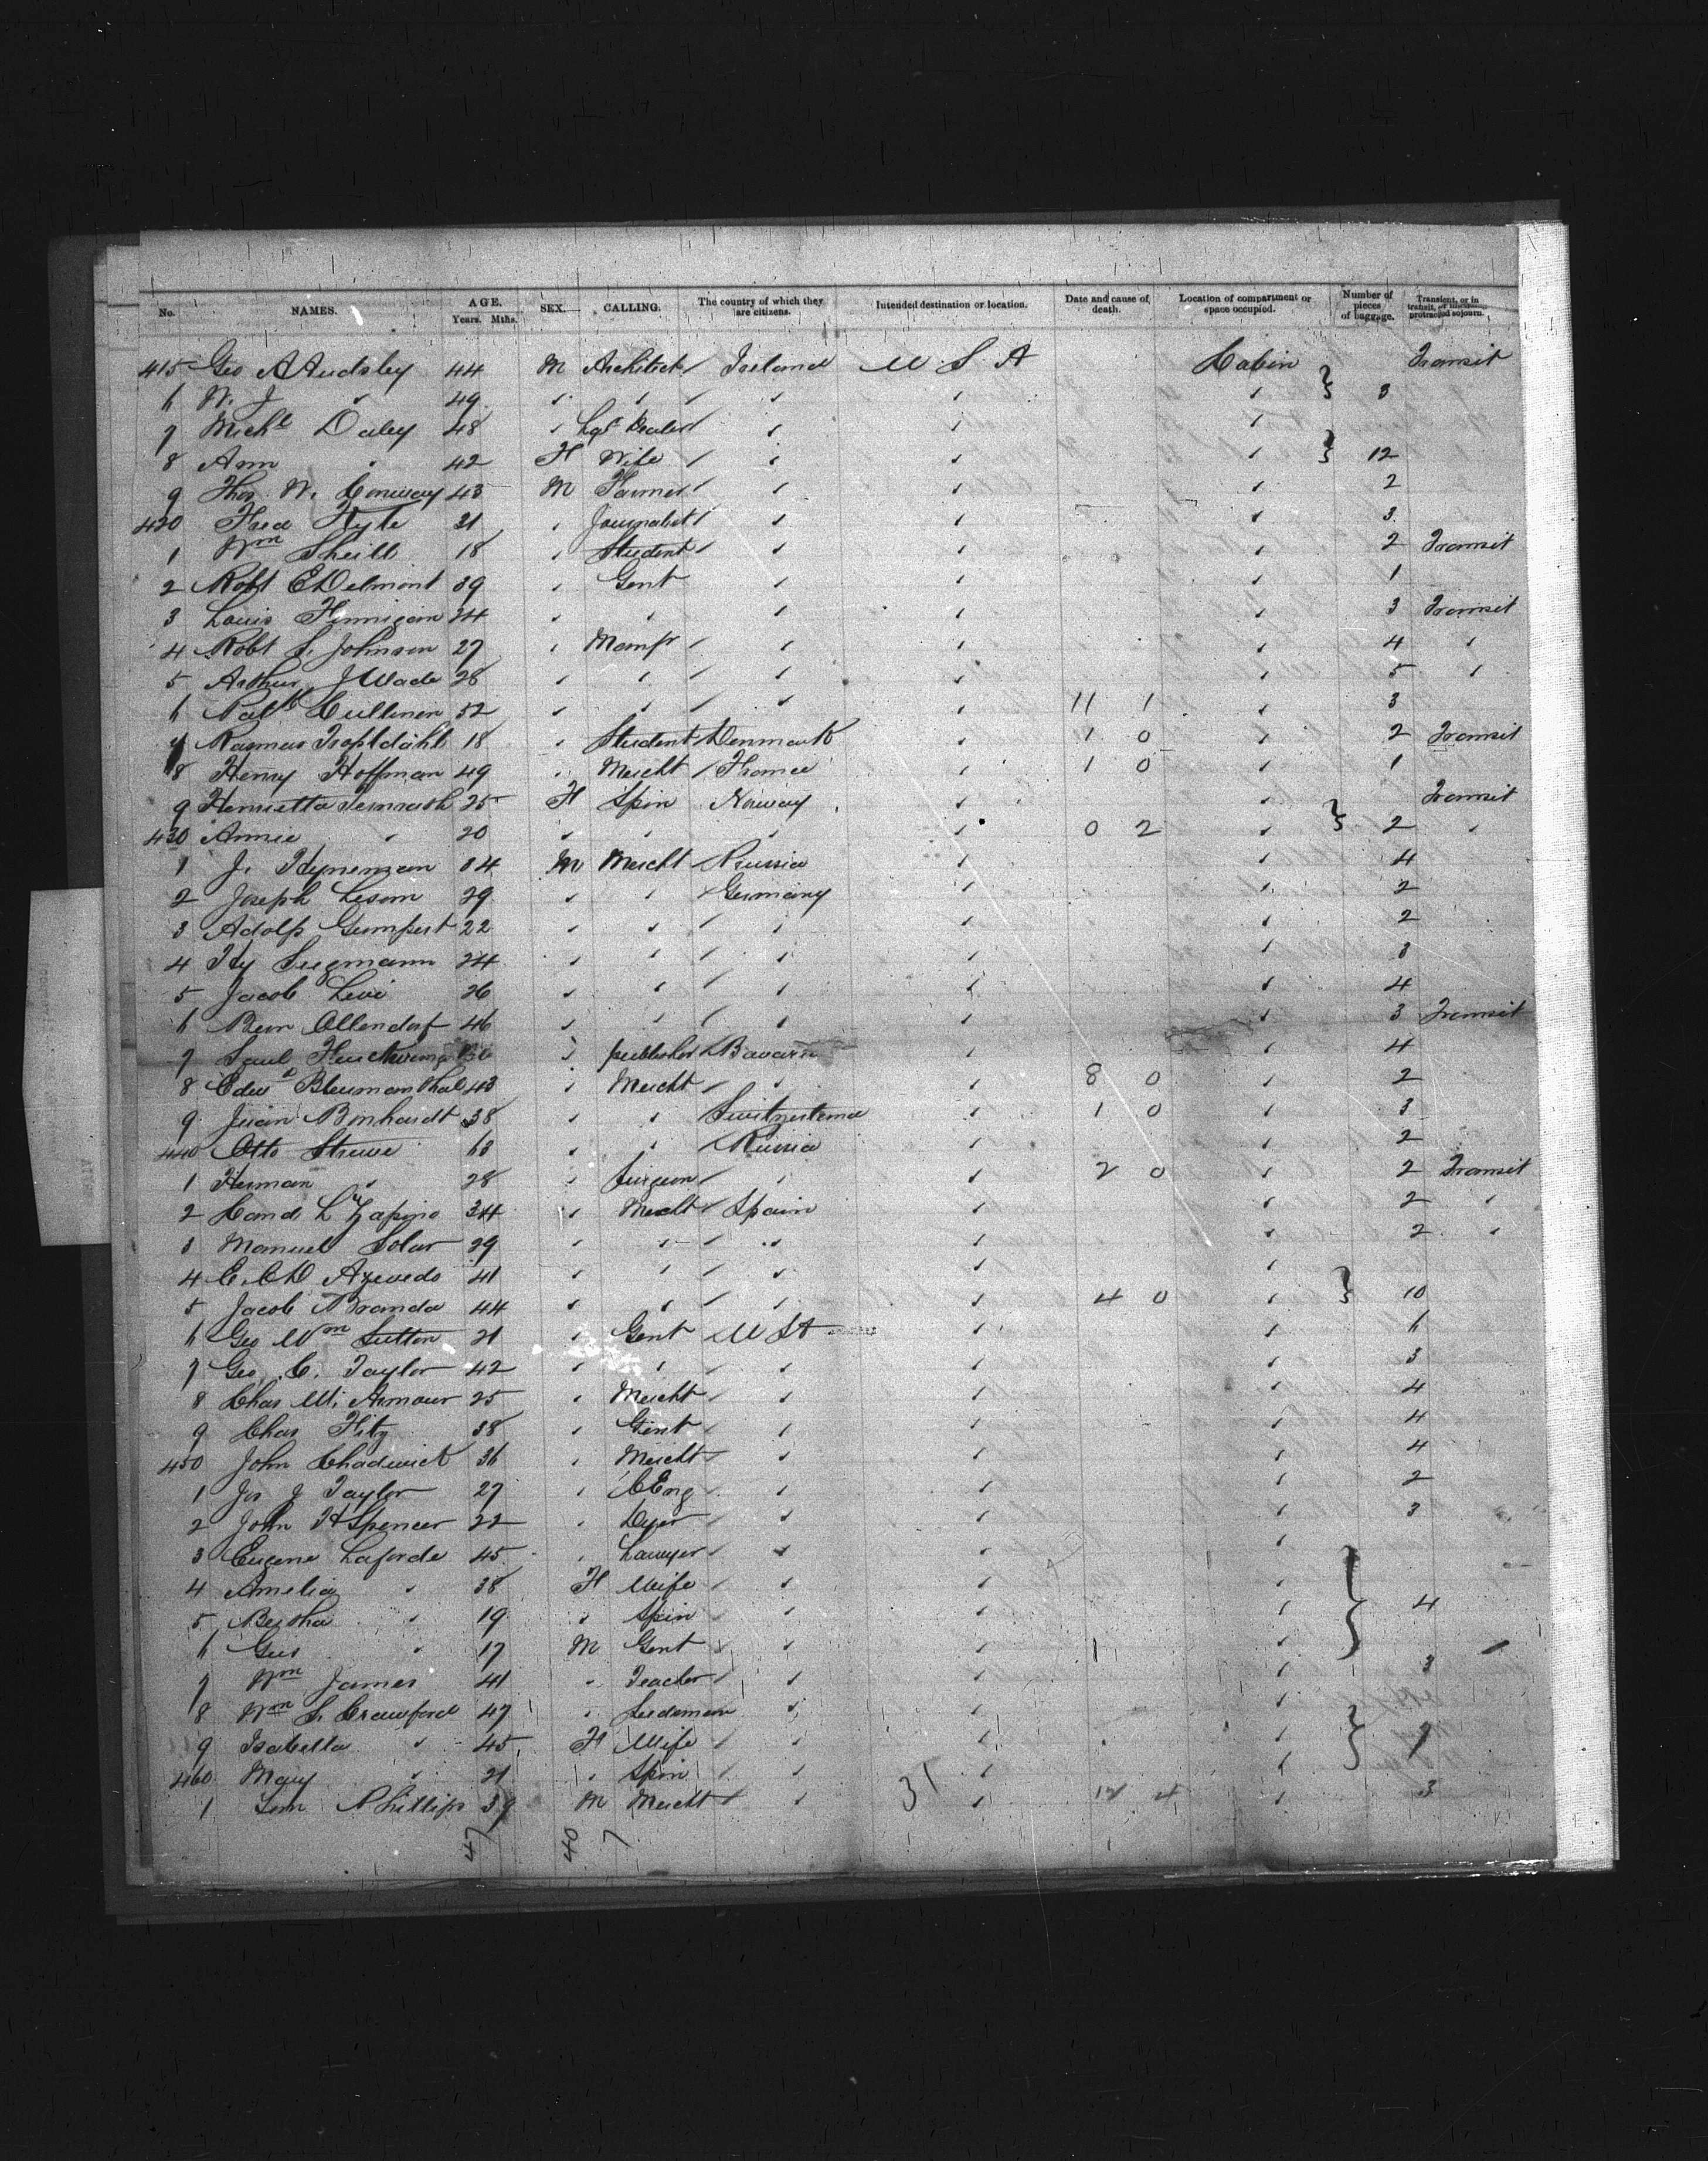 No. NAMES. AGE. Years. Mths. SEX. CALLING. The country of which they are citizens. Intended destination or location. Date and cause of death. Location of compartment or space occupied. Number of pieces of baggage. Transient, or in transit, or intending protracted sojourn.
415 Geo A Audsley 44 M Architect Ireland U S A Cabin Transit
6 W. J " 49 " " " " " } 3
7 Michl Daley 48 " Lqr Dealer " " "
8 Ann " 42 F Wife " " " } 12
9 Thos. W. Conway 43 M Farmer " " " 2
420 Fred Hyle 31 " Journalist " " " 3
1 Wm Sheill 18 " Student " " " 2 Transit
2 Robt E Delmont 39 " Gent " " " 1
3 Louis Finnigan 24 " " " " " 3 Transit
4 Robt S. Johnson 27 " Manfr " " " 4 "
5 Arthur J Wade 28 " " " " " 5 "
6 Patk Cullinan 52 " " " " 11 1 " 3
7 Rasmus 18 " Student Denmark " 1 0 " 2 Transit
8 Henry Hoffman 49 " Mercht France " 1 0 " 1
9 Henrietta 25 F Spin Norway " " Transit
430 Annie " 20 " " " " 0 2 " } 2 "
1 J. Hynemzan 34 M Mercht Prussia " " 4
2 Joseph Lesom 29 " " Germany " " 2
3 Adolf Gumpert 22 " " " " " 2
4 Hy Siegmann 24 " " " " " 3
5 Jacob Levi 26 " " " " " 4
6 Ben Ollendorf 46 " " " " " 3 Transit
7 Saul " publisher Bavaria " " 4
8 Edwd Blumanthal 43 " Mercht " " 8 0 " 2
9 Juan Bonhardt 38 " " Switzerland " 1 0 " 3
440 Otto Struve 63 " " Russia " " 2
1 Herman " 28 " Surgeon " " 2 0 " 2 Transit
2 Cand. L Zapino 34 " Mercht Spain " " 2 "
3 Manuel Solar 29 " " " " " 2 "
4 E. C D Azevedo 41 " " " " "
5 Jacob Miranda 44 " " " " 4 0 " } 10
6 Geo Wm Sutton 21 " Gent U St " " 6
7 Geo. C. Taylor 42 " " " " " 3
8 Chas M. Armour 25 " Mercht " " " 4
9 Chas Fitz 38 " Gent " " " 4
450 John Chadwick 36 " Mercht " " " 4
1 Jos J Taylor 27 " C Eng " " " 2
2 John H Spencer 22 " Dyer " " " 3
3 Eugene Laforde 45 " Lawyer " " "
4 Amelia " 38 F Wife " " "
5 Bertha " 19 " Spin " " " } 4
6 Gus " 17 M Gent " " "
7 Wm James 41 " Teacher " " " 3
8 Wm S. Crawford 47 " Seedsman " "
9 Isabella " 45 F Wife " " " } 7
460 Mary " 21 " Spin " " "
1 Sam Phillips 39 M Mercht " 31 " 14 4 " 3
47 40 7